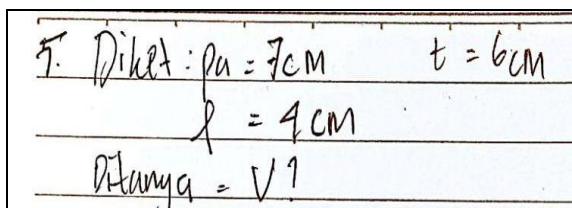 5. Diket : pa = 7 cm t = 6 cm
l = 4 cm
Ditanya = V?